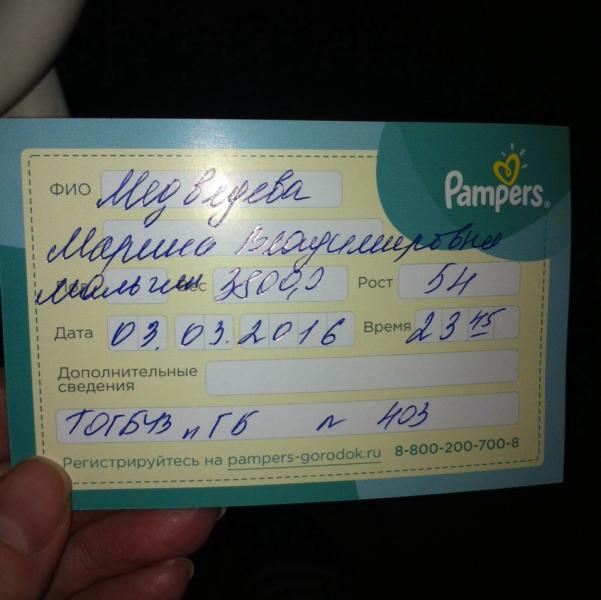 Pampers®
ФИО Медведева
Марина Владимировна
Мальчик 3800,0 Рост 54
Дата 03.03.2016 Время 23 45
Дополнительные
сведения
403
Регистрируйтесь на pampers-gorodok.ru 8-800-200-700-8